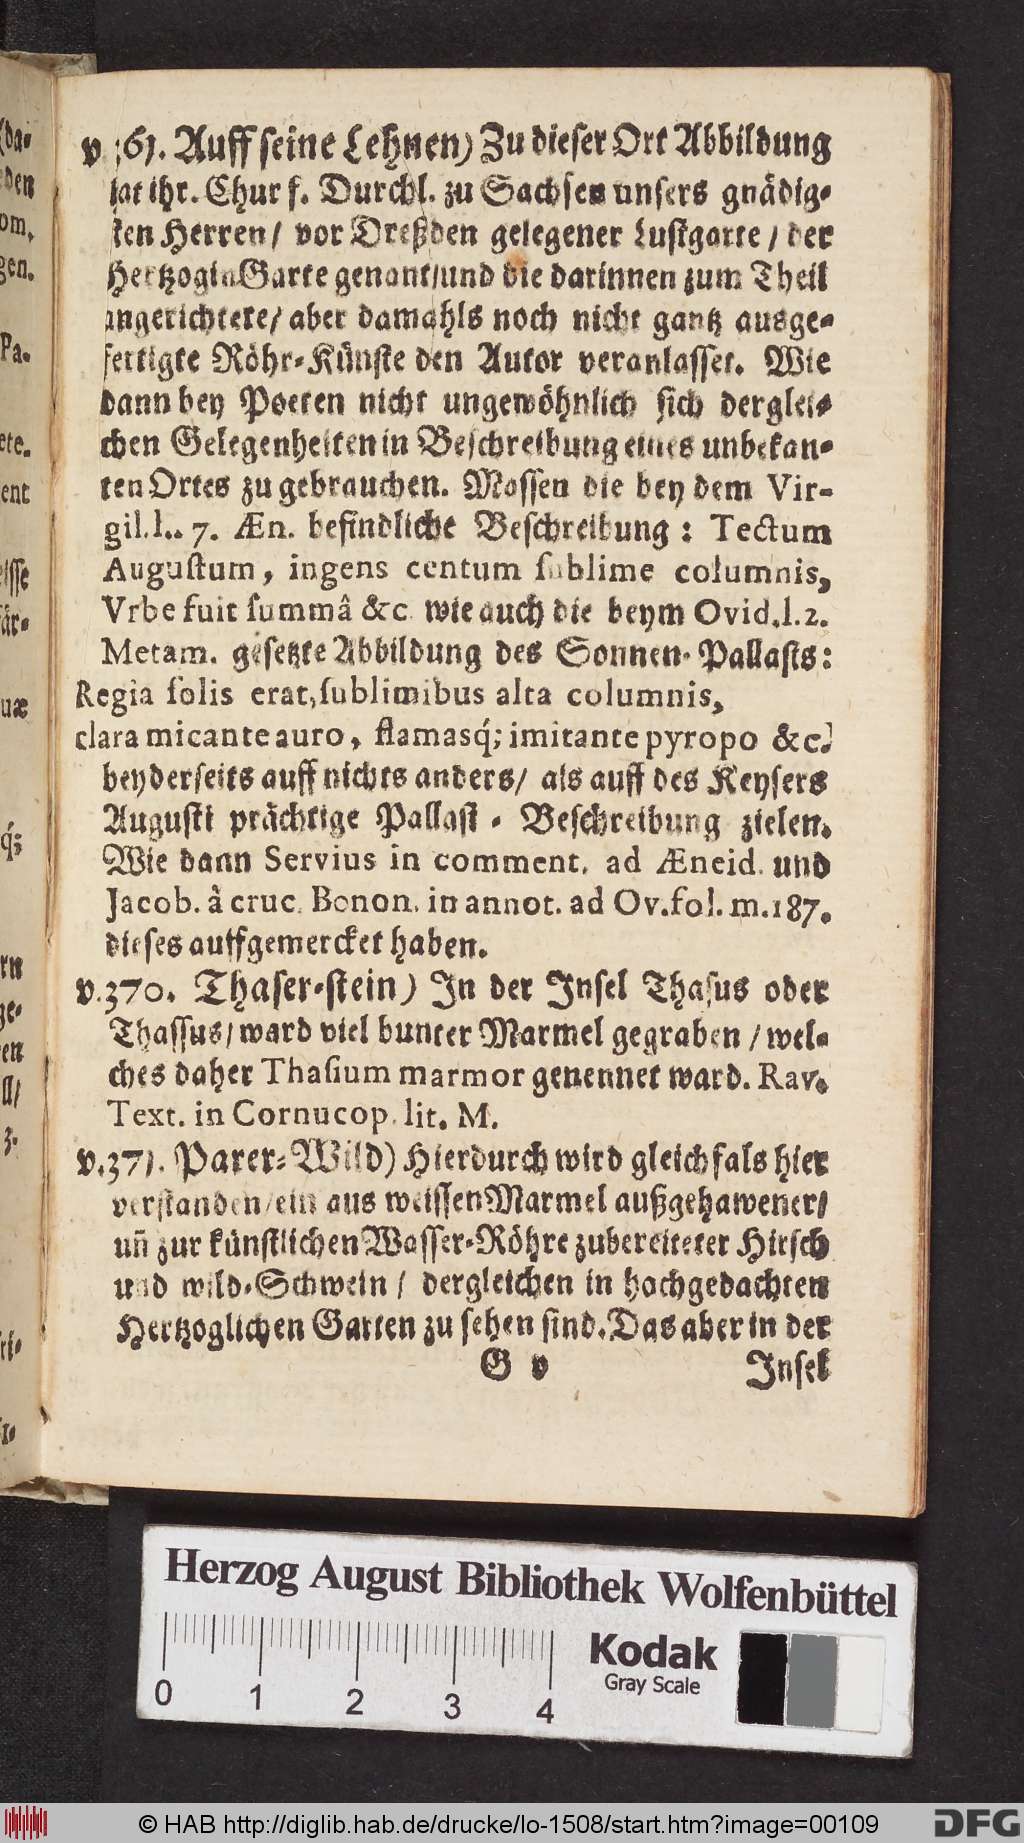 v 361. Auff seine Lehnen) Zu dieser Ort Abbildung
hat ihr. Churf. Durchl. zu Sachsen unsers gnädig-
sten Herren/ vor Dreßden gelegener Lustgarte / der
Hertzogin Garte genant/und die darinnen zum Theil
angerichtete/ aber damahls noch nicht gantz ausge-
fertigte Röhr-Künste den Autor veranlasset. Wie
dann bey Poeten nicht ungewöhnlich sich derglei-
chen Gelegenheiten in Beschreibung eines unbekan-
ten Ortes zu gebrauchen. Massen die bey dem Vir-
gil. l.. 7. Æn. befindliche Beschreibung : Tectum
Augustum, ingens centum sublime columnis,
Vrbe fuit summâ &c. wie auch die beym Ovid. l. 2.
Metam. gesetzte Abbildung des Sonnen-Pallasts:
Regia solis erat, sublimibus alta columnis,
clara micante auro, flamasq́; imitante pyropo &c.
beyderseits auff nichts anders/ als auff des Keysers
Augusti prächtige Pallast - Beschreibung zielen.
Wie dann Servius in comment. ad Æneid. und
Jacob. à cruc. Bonon. in annot. ad Ov. fol. m. 187.
dieses auffgemercket haben.
v. 370. Thaser-stein) In der Insel Thasus oder
Thassus/ ward viel bunter Marmel gegraben / wel-
ches daher Thasium marmor genennet ward. Rav.
Text. in Cornucop. lit. M.
v. 371. Parer-Wild) Hierdurch wird gleichfals hier
verstanden/ein aus weissen Marmel außgehawener/
uñ zur künstlichen Wasser-Röhre zubereiteter Hirsch
und wild-Schwein / dergleichen in hochgedachten
Hertzoglichen Garten zu sehen sind. Das aber in der
G v
Insel
Herzog August Bibliothek Wolfenbüttel
Kodak
Gray Scale
0 1 2 3 4
© HAB http://diglib.hab.de/drucke/lo-1508/start.htm?image=00109
DFG